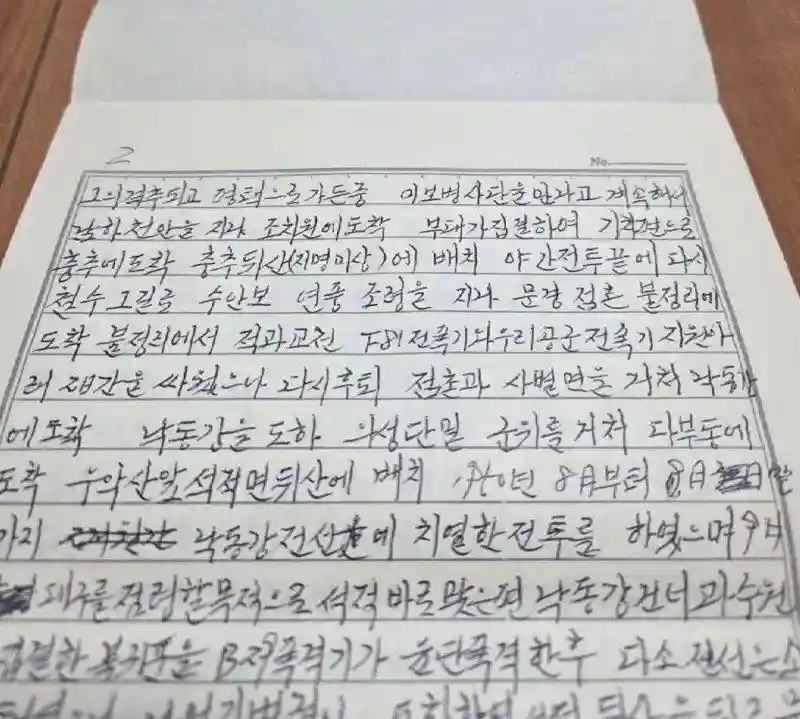 2
No.
그의격추되고 평택으로가든중 미보병사단을만나고 계속해서
남하천안을 지나 조치원에도착 부대가집결하여 기차편으로
충주에도착 충주뒤산(지명미상)에 배치 야간전투끝에 다시
철수그길로 수안보 연풍 조령을 지나 문경 점촌 불정리에
도착 불정리에서 적과교전 F81전폭기와우리공군전폭기지원아
래 싸웠으나 다시후퇴 점촌과 사벌면을 거쳐 낙동강
에도착 낙동강을 도하 의성단밀 군위를 거쳐 다부동에
도착 유악산앞석적면뒤산에 배치 8月부터 8月 말
가지 낙동강전선에 치열한전투를 하였으며 9月
대구를점령할목적으로 석적 바로맞은편낙동강건너과수원
집결한 B29폭격기가 융단폭격한후 다소전선은소